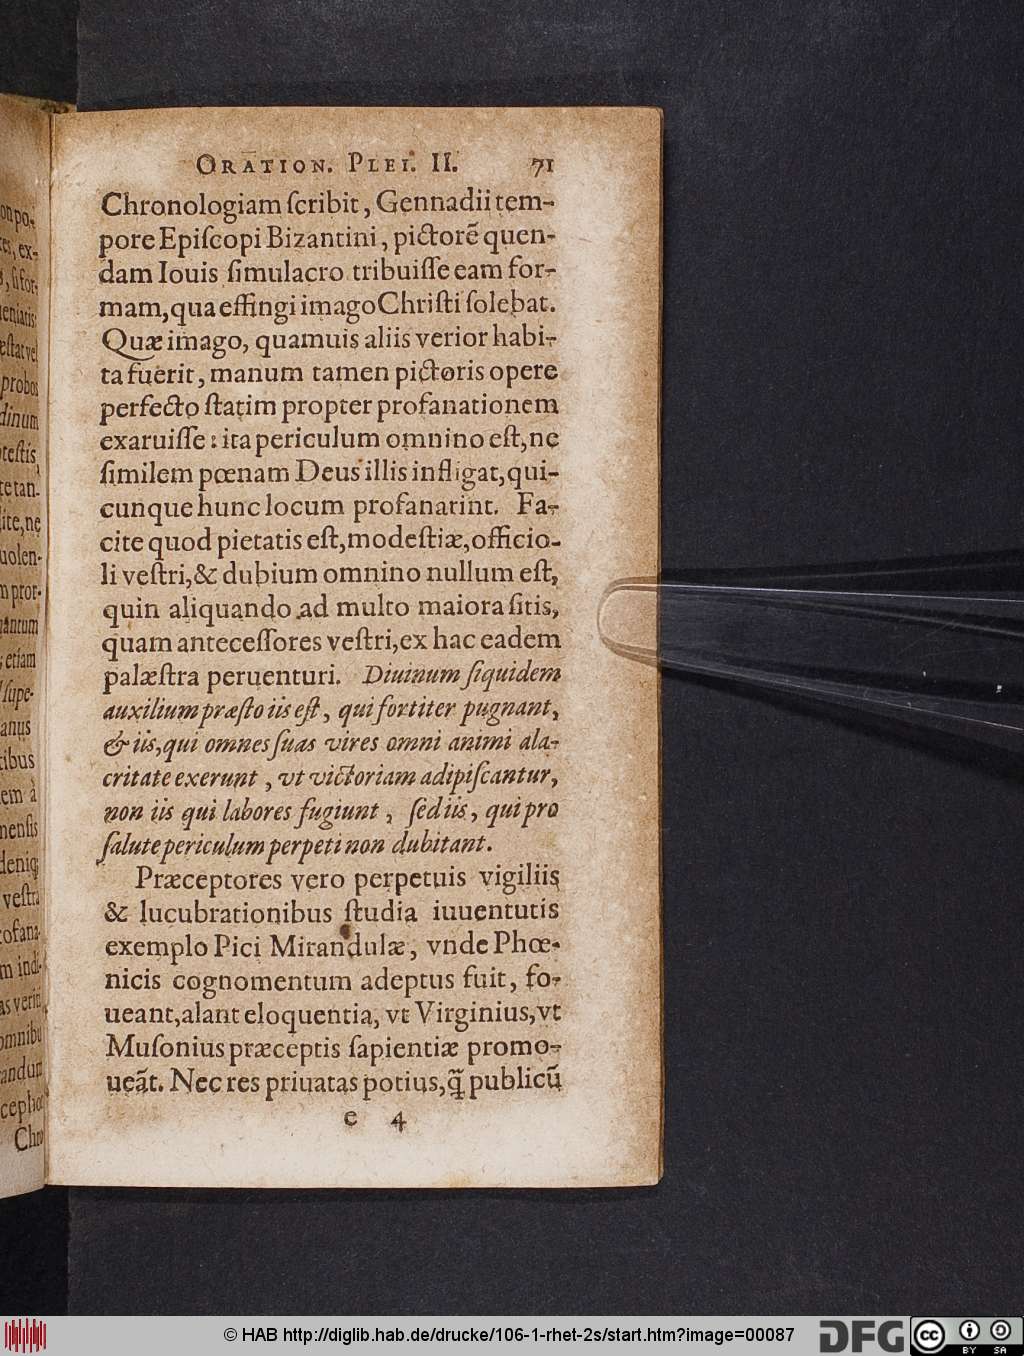 ORATION. PLEI. II. 71
Chronologiam ſcribit, Gennadii tem-
pore Epiſcopi Bizantini, pictorē quen-
dam Iouis ſimulacro tribuiſſe eam for-
mam, qua effingi imago Chriſti ſolebat.
Quæ imago, quamuis aliis verior habi-
ta fuerit, manum tamen pictoris opere
perfecto ſtatim propter profanationem
exaruiſſe: ita periculum omnino eſt, ne
ſimilem pœnam Deus illis infligat, qui-
cunque hunc locum profanarint. Fa-
cite quod pietatis eſt, modeſtiæ, officio-
li veſtri, & dubium omnino nullum eſt,
quin aliquando ad multo maiora ſitis,
quam anteceſſores veſtri, ex hac eadem
palæſtra peruenturi. Diuinum ſiquidem
auxilium præſto iis eſt, qui fortiter pugnant,
& iis, qui omnes ſuas vires omni animi ala-
critate exerunt, vt victoriam adipiſcantur,
non iis qui labores fugiunt, ſed iis, qui pro
ſalute periculum perpeti non dubitant.
Præceptores vero perpetuis vigiliis
& lucubrationibus ſtudia iuuentutis
exemplo Pici Mirandulæ, vnde Phœ-
nicis cognomentum adeptus fuit, fo-
ueant, alant eloquentia, vt Virginius, vt
Muſonius præceptis ſapientiæ promo-
ueāt. Nec res priuatas potius, q̃ publicū
e 4
on po-
ex-
ſi for-
probos
dinum
teſtis,
te tan-
lite, ne
uolen-
m pror-
; etiam
ſupe-
anus
tibus
em à
menſis
deniq;
veſtra
m indi-
omnibu
Chro
© HAB http://diglib.hab.de/drucke/106-1-rhet-2s/start.htm?image=00087
DFG
cc
BY SA